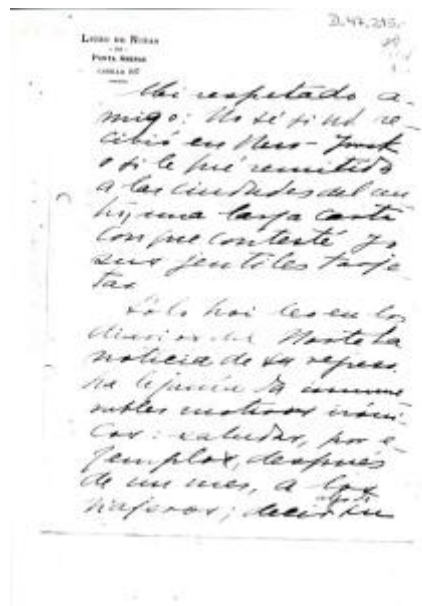 D.47.215.
LICEO DE NIÑAS
- DE -
PUNTA ARENAS
CASILLA 307
Mi respetado a-
migo: No sé si Ud re-
cibió en New-York
o si le fué remitido
a las ciudades del
una larga carta
con que contesté yo
sus gentiles tarje-
tas
Sólo hoi leo en los
diarios del Norte la
noticia de su regreso.
La lejanía da innume
rables motivos iróni-
cos: saludar, por e-
jemplos, después
de un mes, a los
viajeros; decir